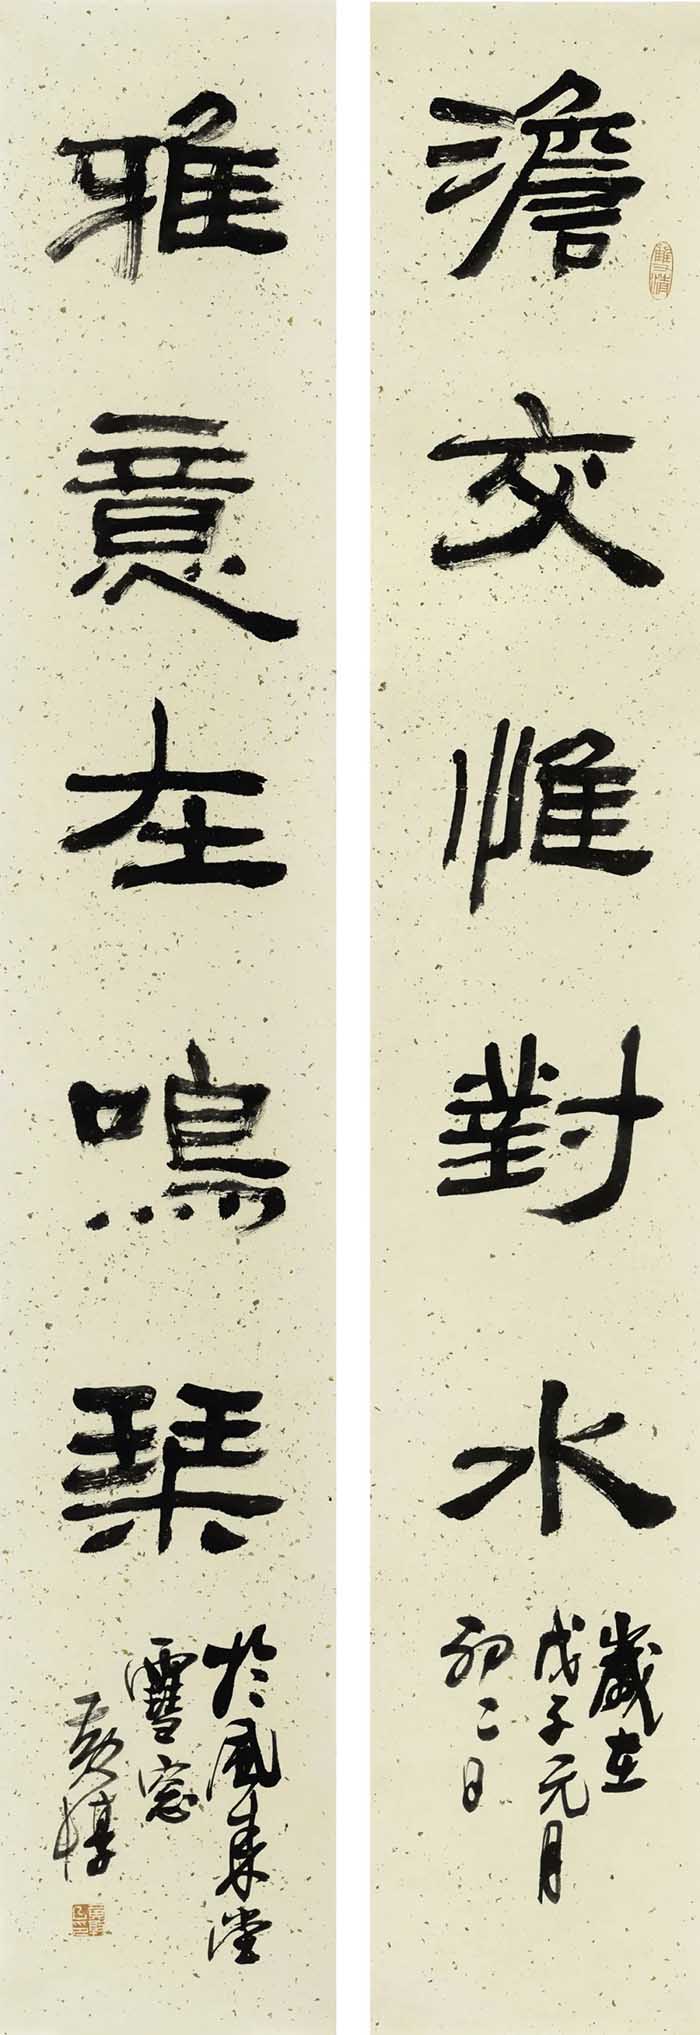 澹交惟對水
歲在
戊子元月
初二日
雅意在鳴琴
於風來堂
雪窓
黃惇